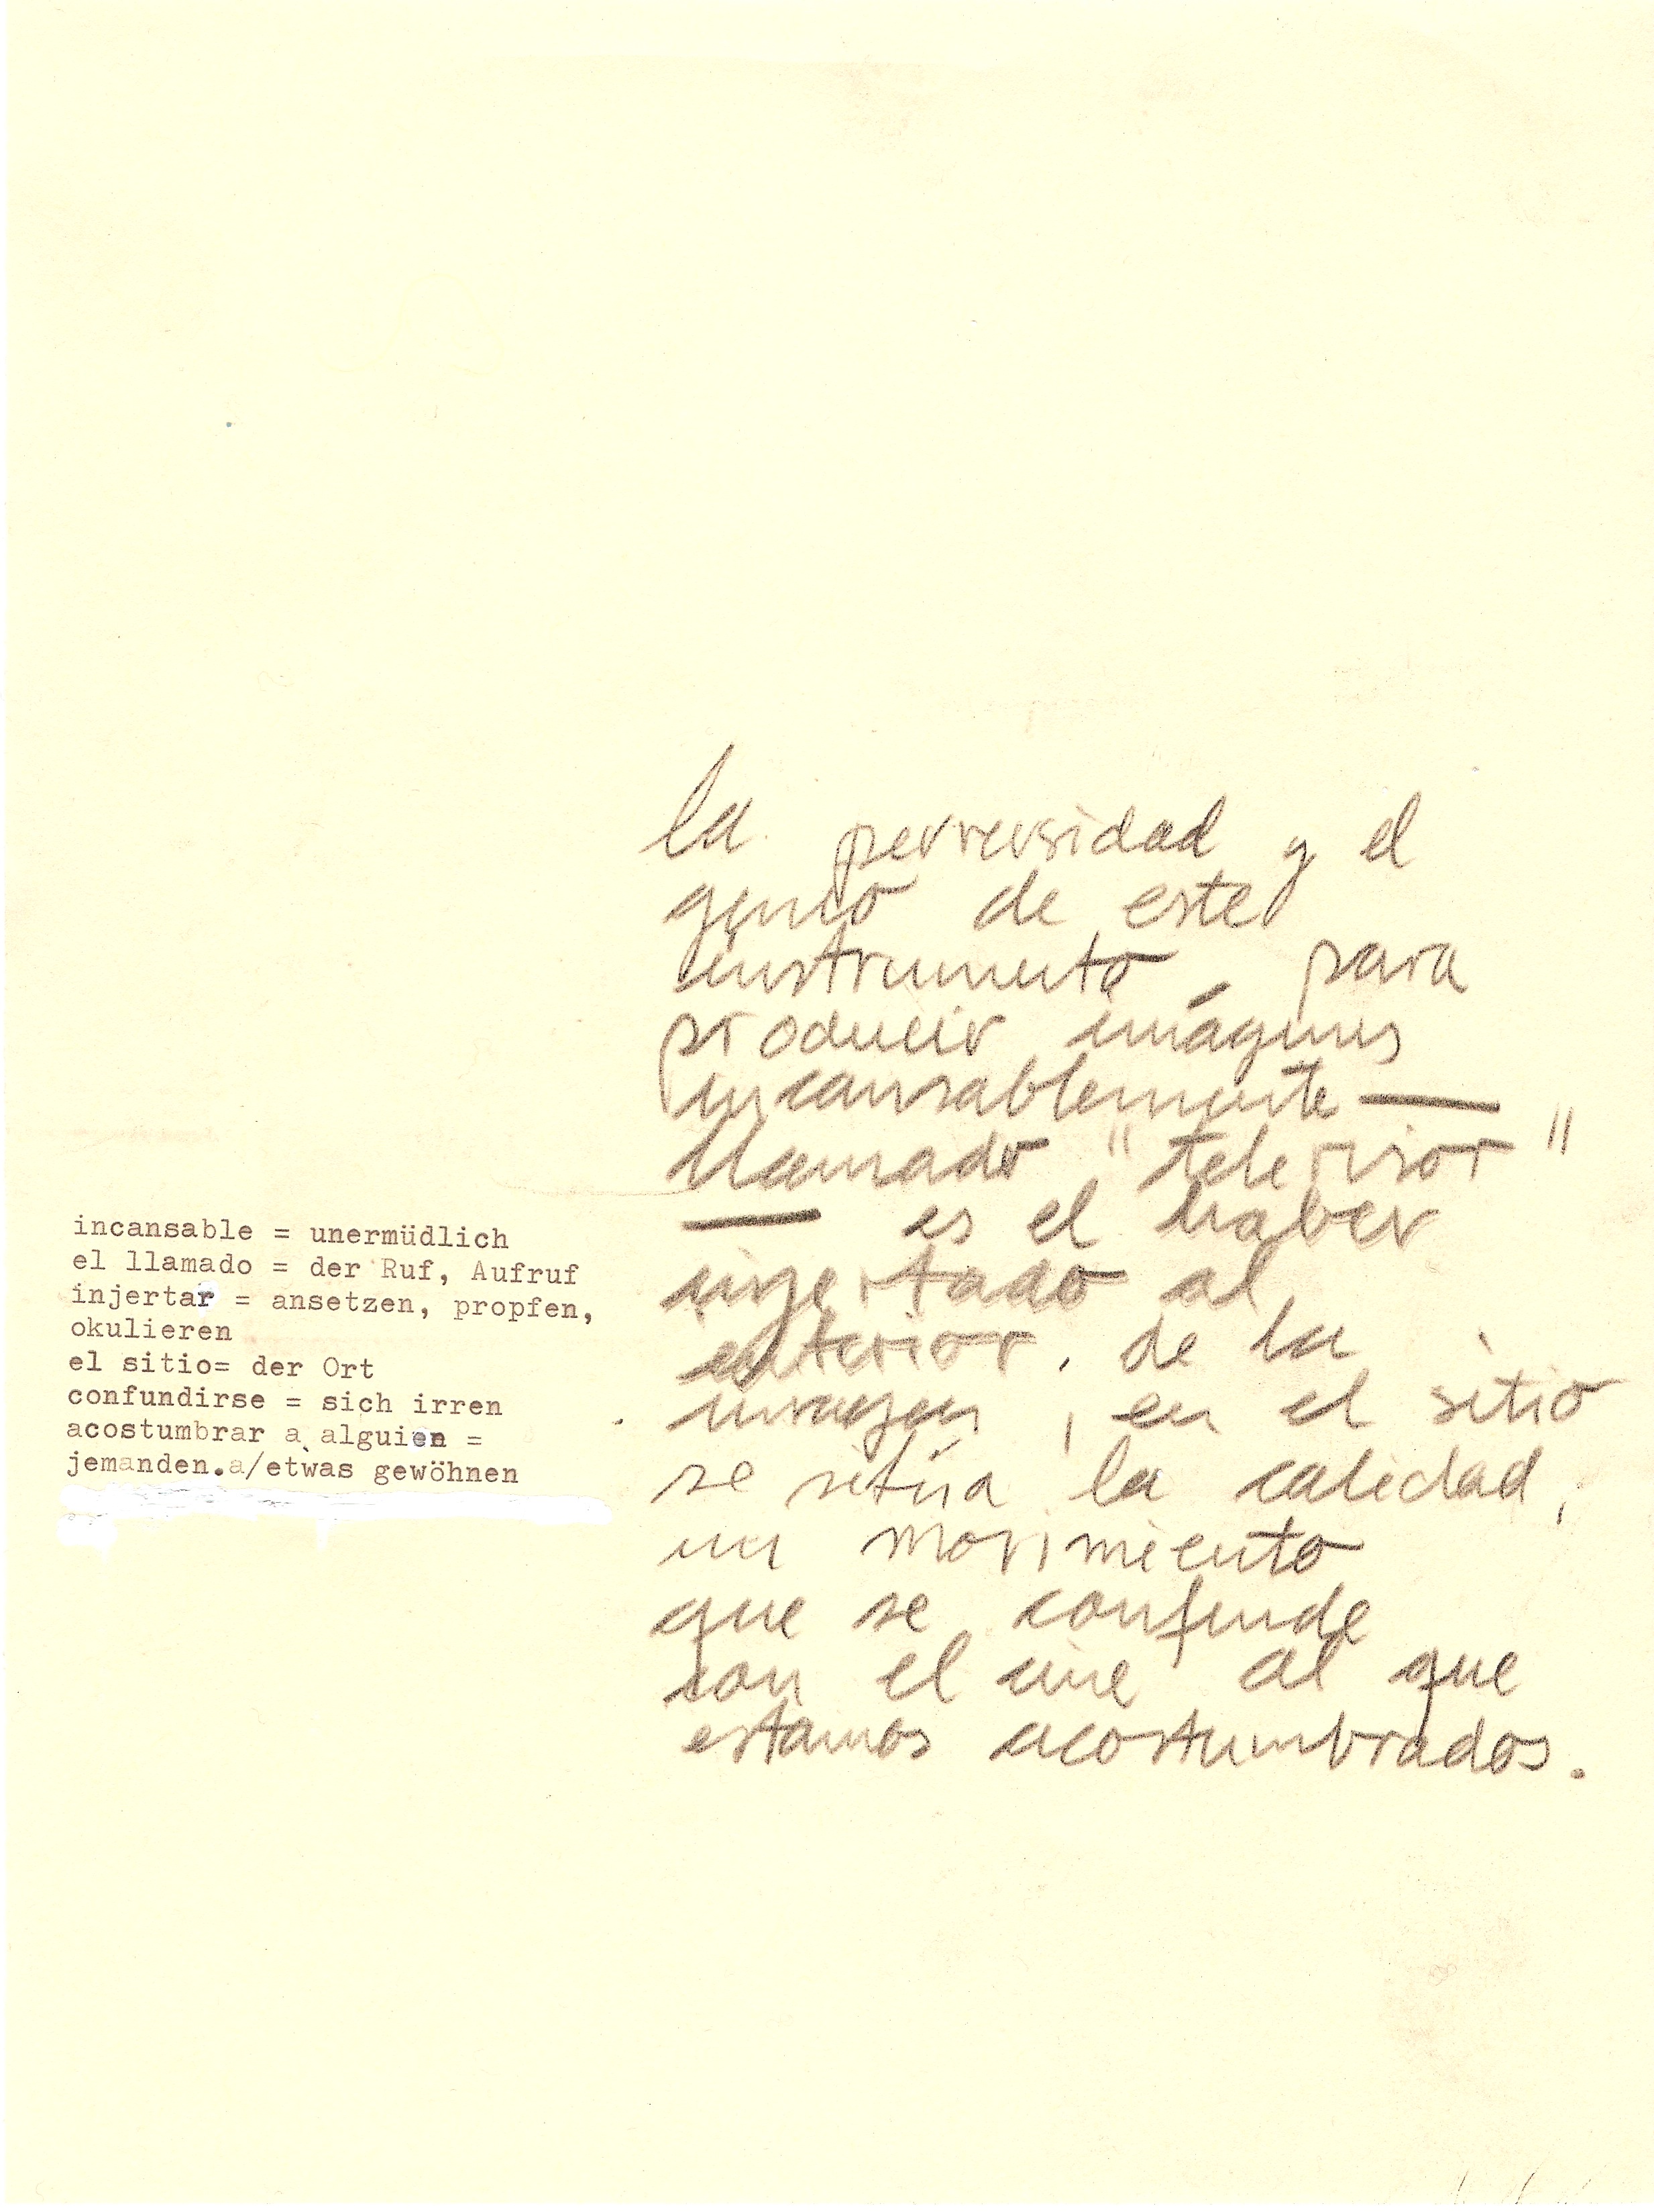 la perversidad y el
genio de este
instrumento, para
producir imágenes
incansablemente —
llamado "televisor"
— es el haber
injertado al
interior, de la
imagen, en el sitio
se sitúa la calidad,
un movimiento
que se confunde
con el cine al que
estamos acostumbrados.
incansable = unermüdlich
el llamado = der Ruf, Aufruf
injertar = ansetzen, propfen,
okulieren
el sitio= der Ort
confundirse = sich irren
acostumbrar a alguien =
jemanden.a/etwas gewöhnen